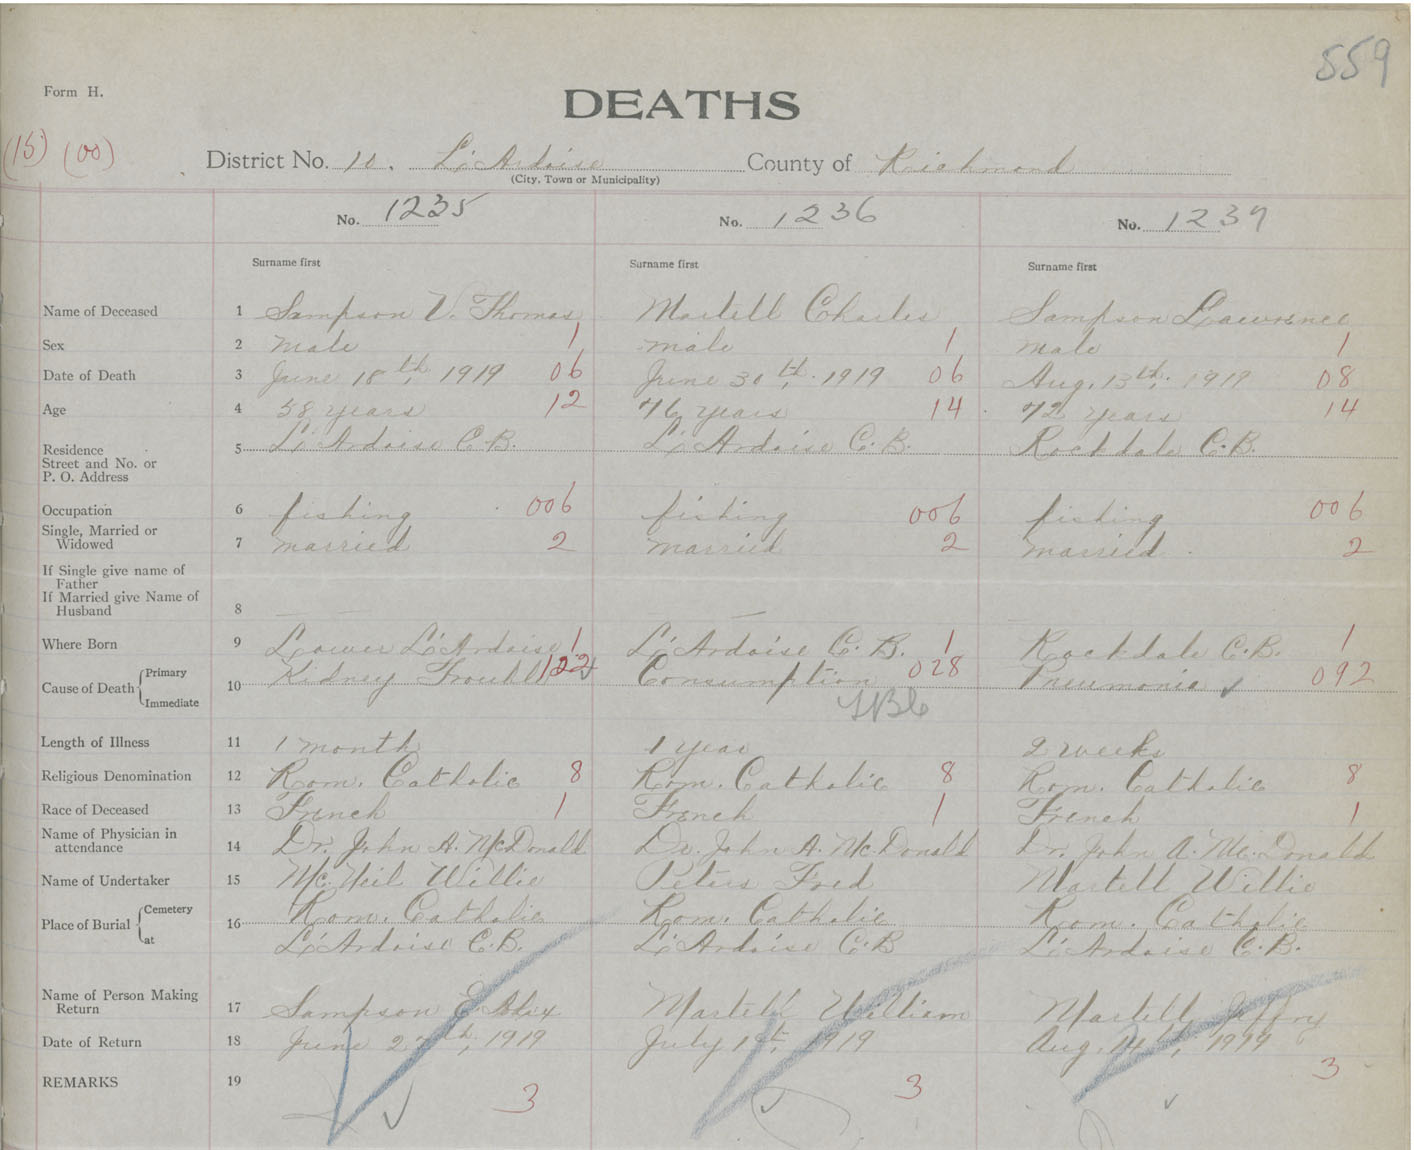 559
Form H.
DEATHS
(15) (00)
District No. 10. L'Ardoise County of Richmond
(City, Town or Municipality)
No. 1235 No. 1236 No. 1237
Surname first Surname first Surname first
Name of Deceased 1 Sampson V. Thomas Martell Charles Sampson Lawrence
Sex 2 male 1 male 1 male 1
Date of Death 3 June 18th, 1919 06 June 30th, 1919 06 Aug. 13th, 1919 08
Age 4 58 years 12 76 years 14 72 years 14
Residence 5 L'Ardoise C.B. L'Ardoise C.B. Rockdale C.B.
Street and No. or
P. O. Address
Occupation 6 fishing 006 fishing 006 fishing 006
Single, Married or
Widowed 7 married 2 married 2 married 2
If Single give name of
Father
If Married give Name of
Husband 8
Where Born 9 Lower L'Ardoise 1 L'Ardoise C.B. 1 Rockdale C.B. 1
Cause of Death Primary 10 Kidney Trouble 122 Consumption 028 Pneumonia 092
Immediate TBC
Length of Illness 11 1 month 1 year 2 weeks
Religious Denomination 12 Rom. Catholic 8 Rom. Catholic 8 Rom. Catholic 8
Race of Deceased 13 French 1 French 1 French 1
Name of Physician in
attendance 14 Dr. John A. McDonald Dr. John A. Mc.Donald Dr. John A. Mc.Donald
Name of Undertaker 15 Mc.Neil Willie Peters Fred Martell Willie
Place of Burial Cemetery 16 Rom. Catholic Rom. Catholic Rom. Catholic
at L'Ardoise C.B. L'Ardoise C.B L'Ardoise C.B.
Name of Person Making
Return 17 Sampson Martell William Martell Jeffry
Date of Return 18 June 1919 July 1st, 1919 Aug. 14th, 1919
REMARKS 19 3 3 3